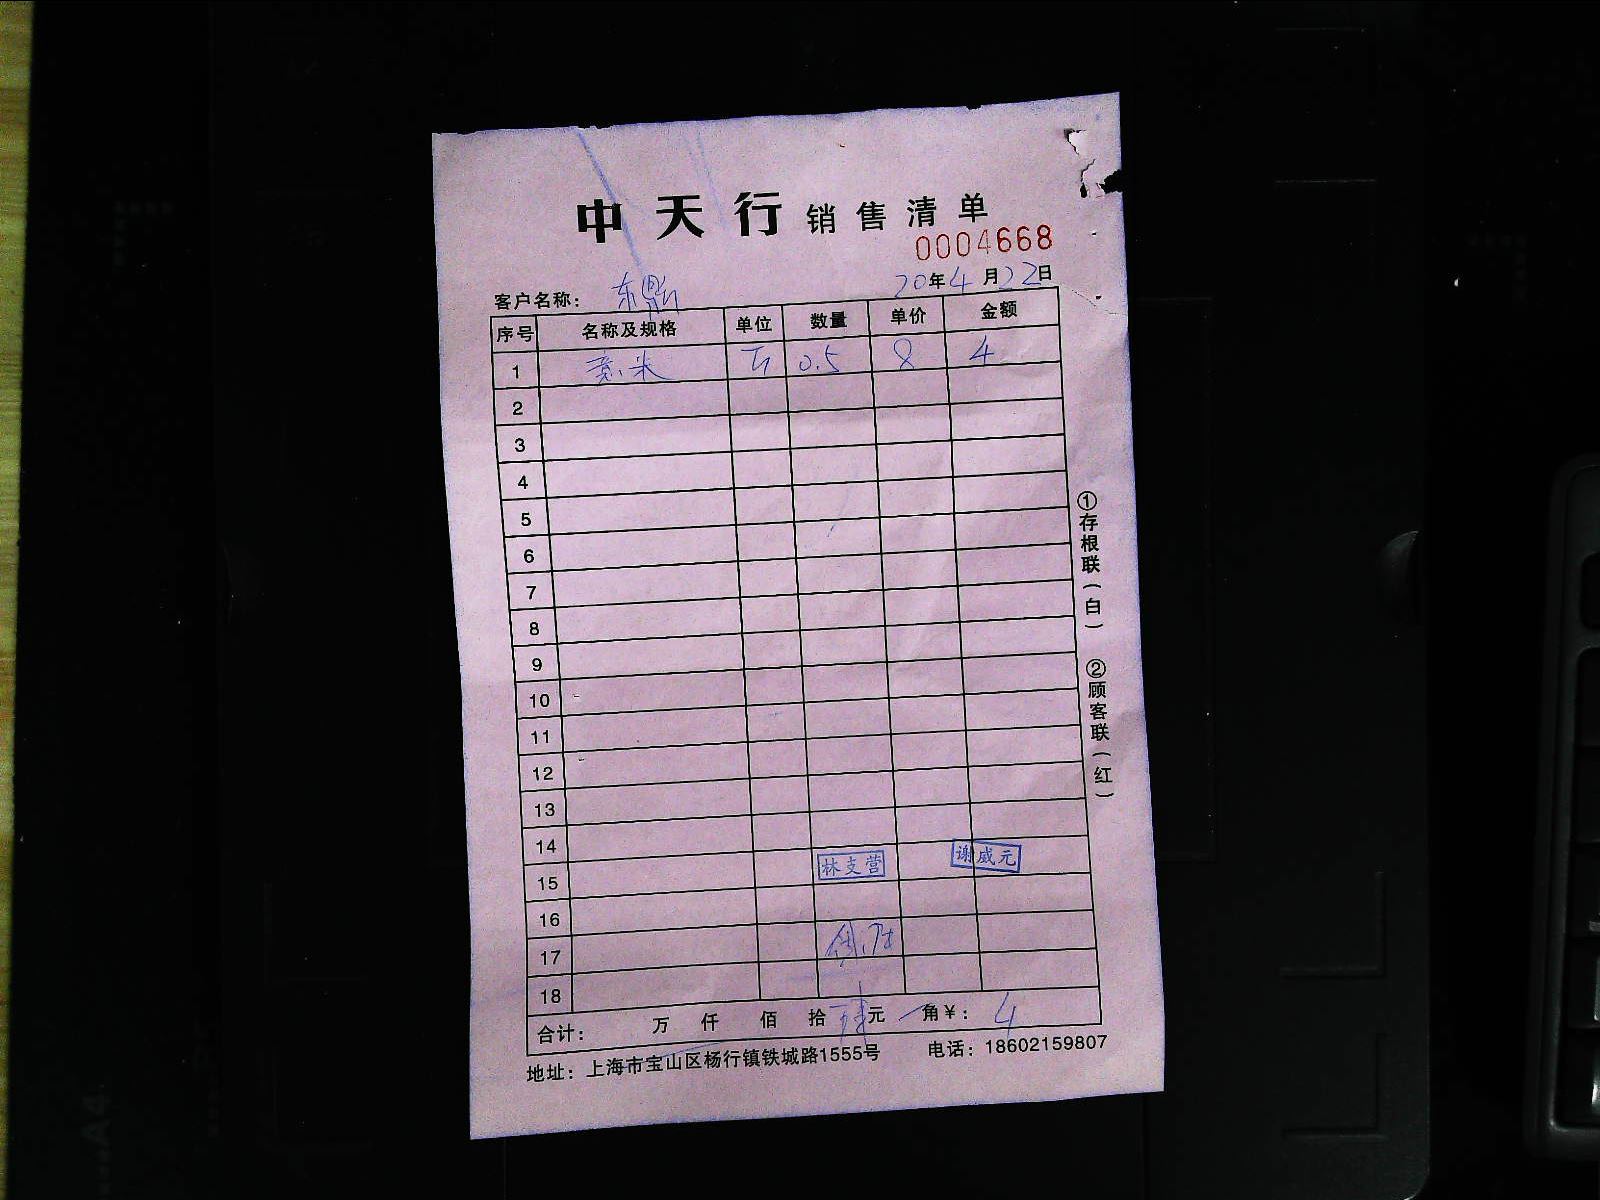 中天行销售清单
0004668
客户名称： 20年4月22日
序号 名称及规格 单位 数量 单价 金额
1 薏米 斤 0.5 8 4
2
3
4
5
6
7
8
9
10
11
12
13
14
15 林支营 谢威元
16
17
18
合计： 万 仟 佰 拾 肆元 角￥： 4
地址：上海市宝山区杨行镇铁城路1555号 电话：18602159807
①存根联（白） ②顾客联（红）